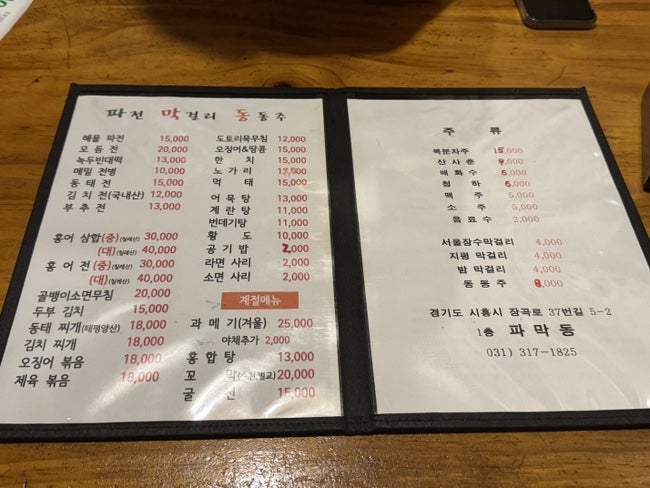 파전 막걸리 동동주
해물 파전 15,000
모 듬 전 20,000
녹두빈대떡 13,000
메밀 전병 10,000
동 태 전 15,000
김 치 전(국내산) 12,000
부 추 전 13,000
홍어 삼합(중)(칠레산) 30,000
(대)(칠레산) 40,000
홍 어 전(중)(칠레산) 30,000
(대)(칠레산) 40,000
골뱅이소면무침 20,000
두부 김치 15,000
동태 찌개(태평양산) 18,000
김치 찌개 18,000
오징어 볶음 18,000
제육 볶음 18,000
도토리묵무침 12,000
오징어&땅콩 15,000
한 치 15,000
노 가 리 13,000
먹 태 15,000
어 묵 탕 13,000
계 란 탕 11,000
번데기탕 11,000
황 도 10,000
공 기 밥 2,000
라면 사리 2,000
소면 사리 2,000
계절메뉴
과 메 기(겨울) 25,000
야채추가 2,000
홍 합 탕 13,000
꼬 막(순천,벌교) 20,000
굴 전 15,000
주 류
복분자주 15,000
산 사 춘
매 화 수 6,000
청 하 6,000
맥 주 5,000
소 주 5,000
음 료 수 2,000
서울장수막걸리 4,000
지평 막걸리 4,000
밤 막걸리 4,000
동 동 주 8,000
경기도 시흥시 장곡로 37번길 5-2
1층 파막동
031) 317-1825